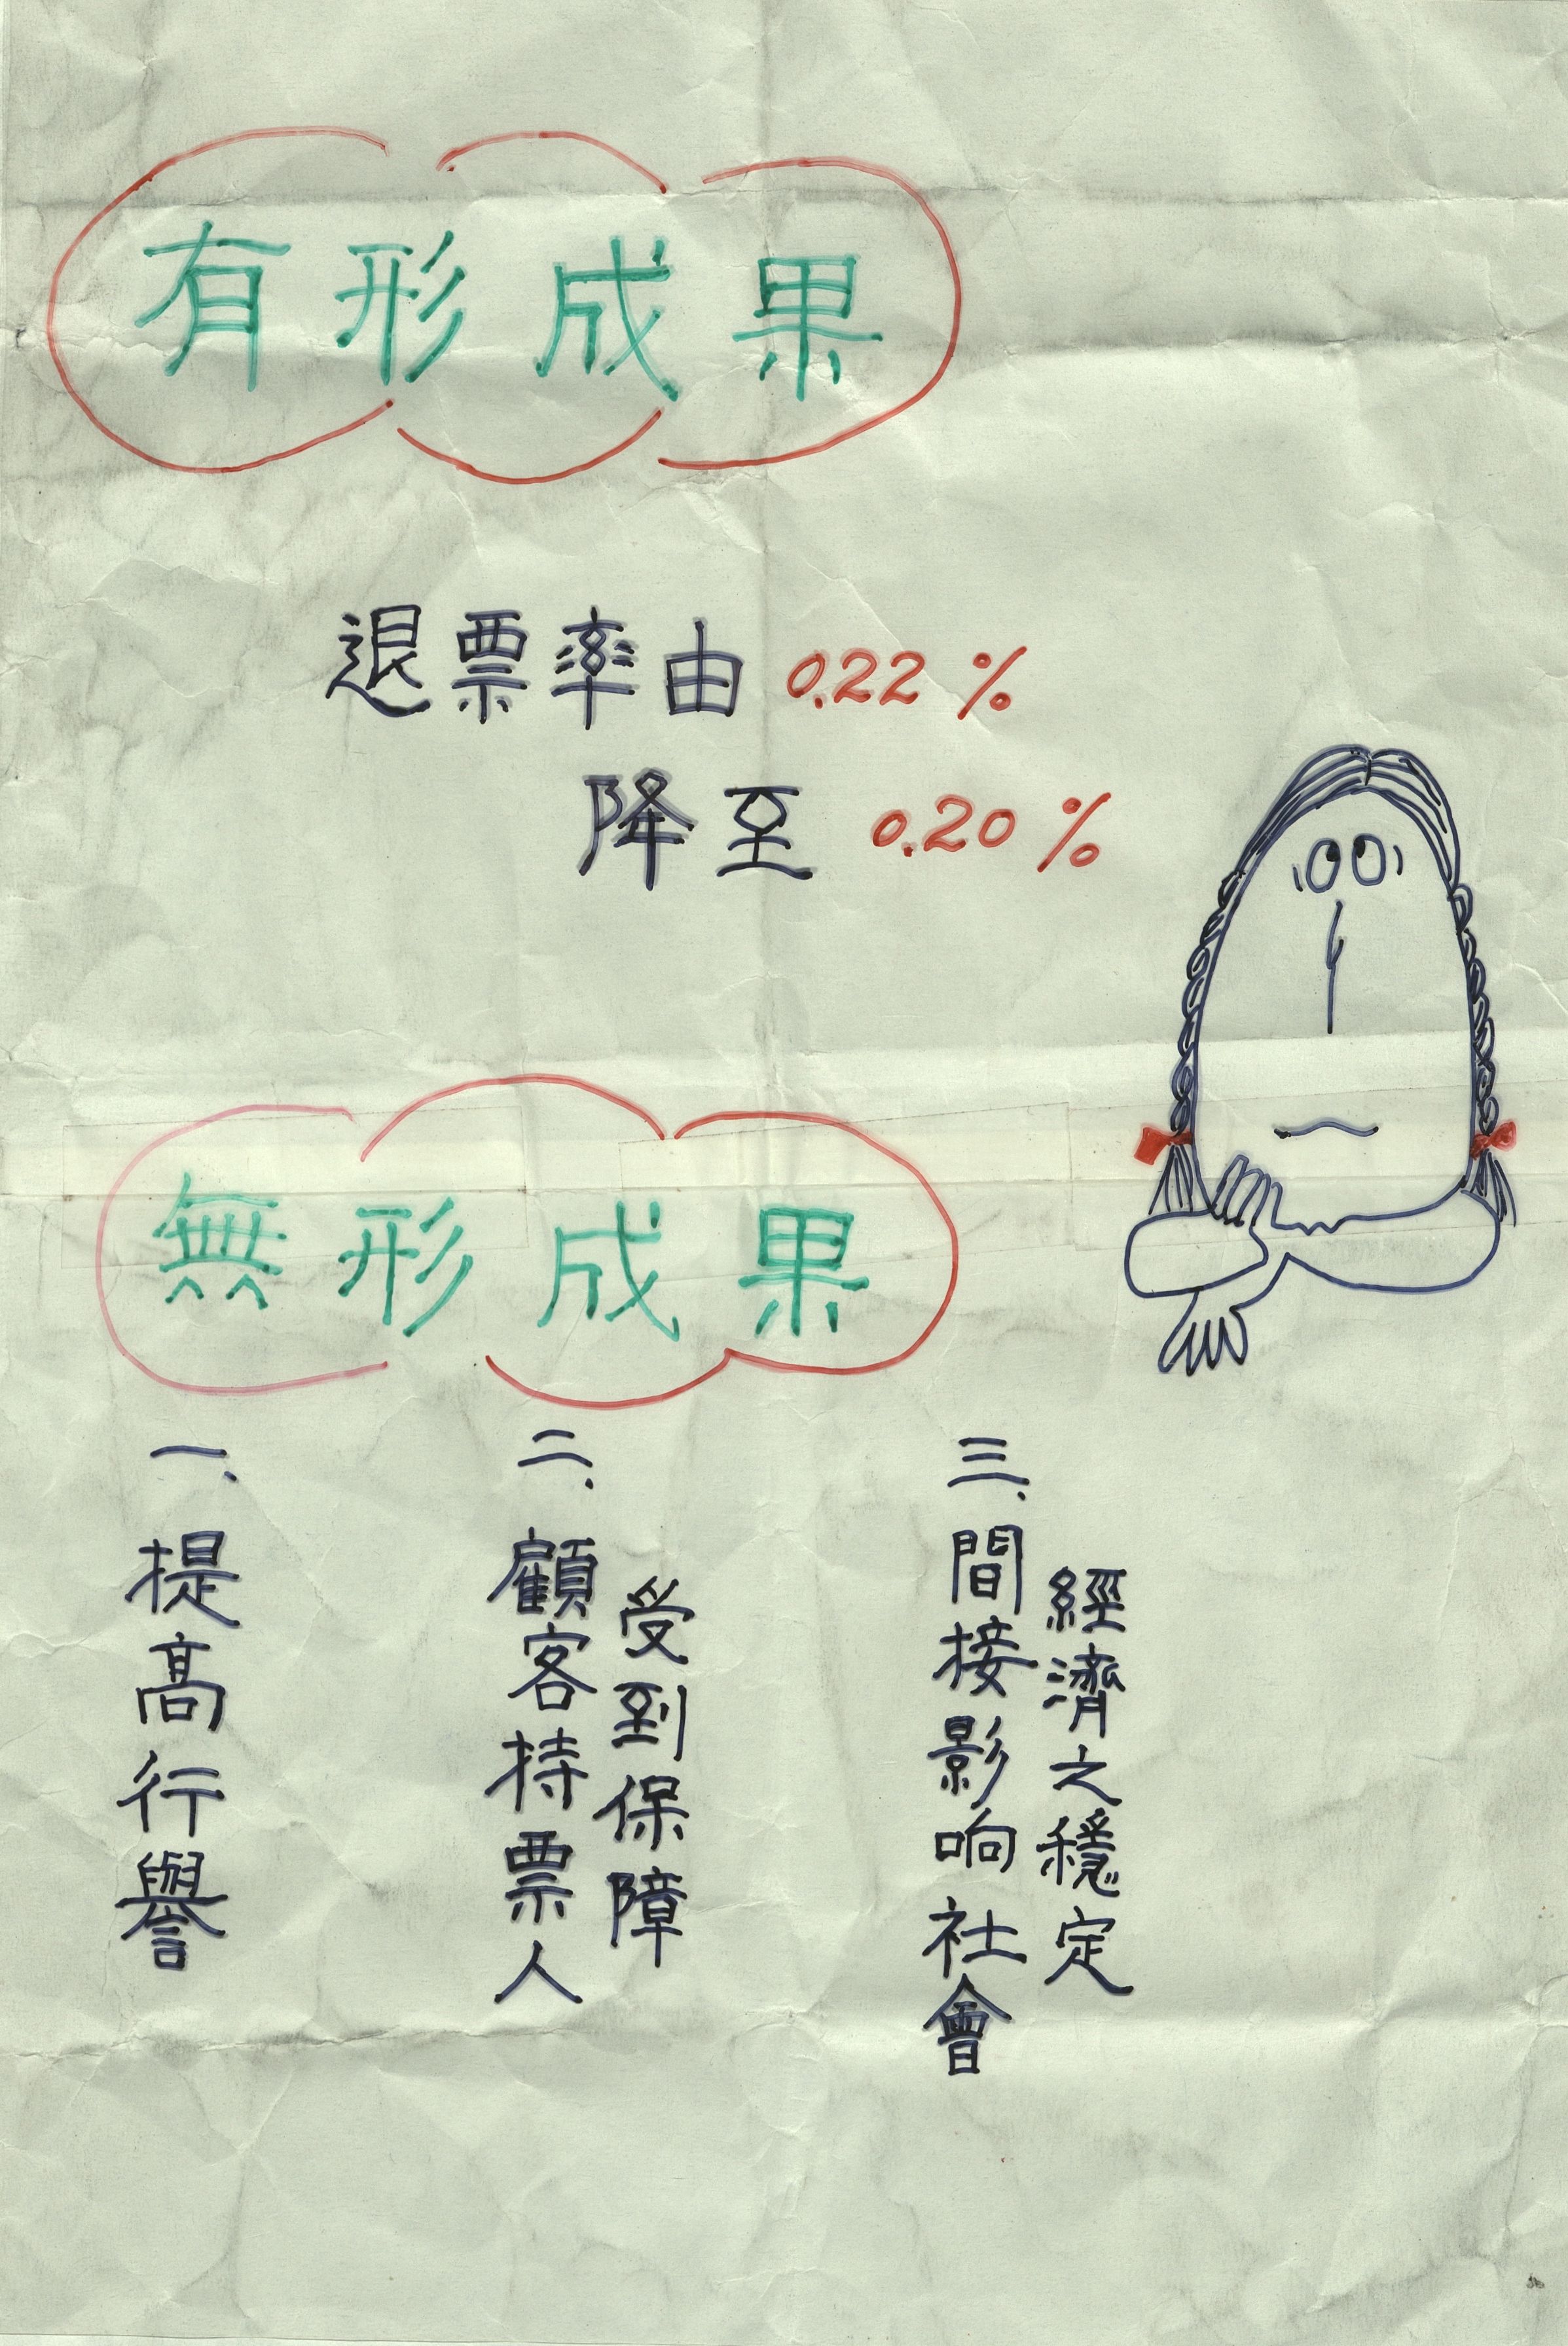 有形成果
退票率由 0.22 %
降至 0.20 %
無形成果
一、
提高行譽
二、
顧客持票人
受到保障
三、
間接影响社會
經濟之穩定